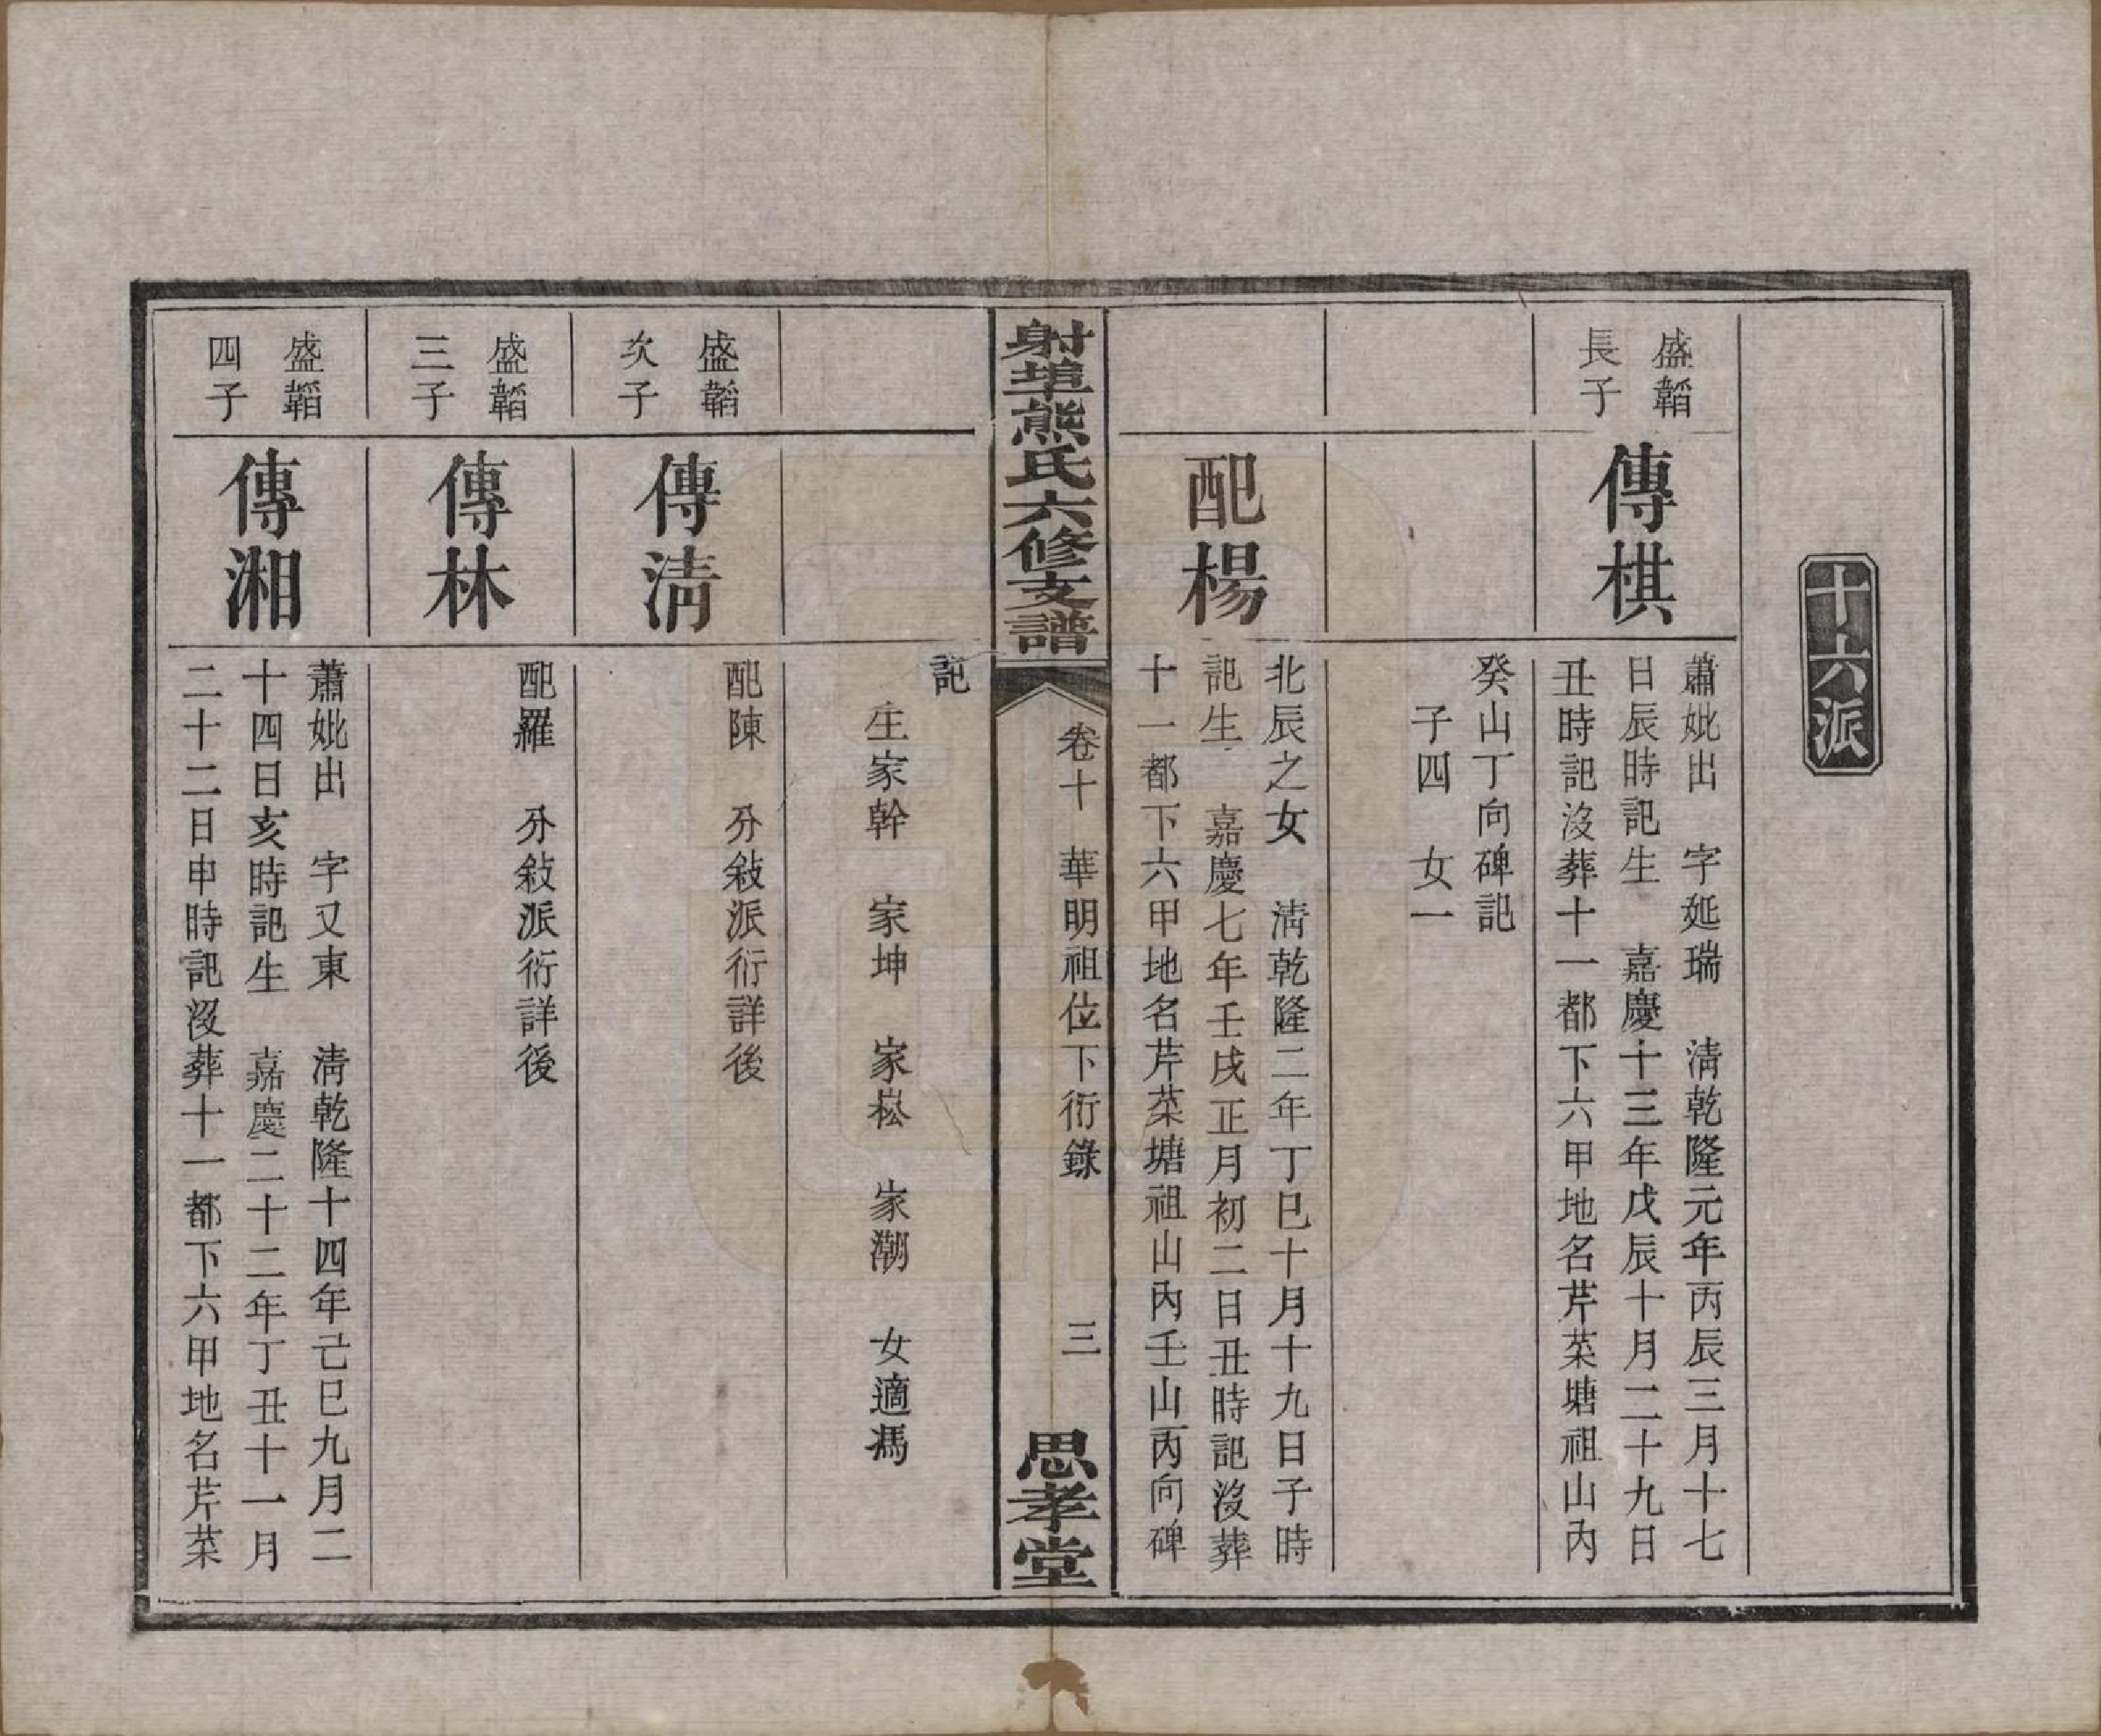 十六派
盛韜
長子
傳棋
蕭妣出　字延瑞　淸乾隆元年丙辰三月十七
日辰時記生　嘉慶十三年戊辰十月二十九日
丑時記沒葬十一都下六甲地名芹菜塘祖山內
癸山丁向碑記
子四　女一
配楊
北辰之女　淸乾隆二年丁巳十月十九日子時
記生　嘉慶七年壬戌正月初二日丑時記沒葬
十一都下六甲地名芹菜塘祖山內壬山丙向碑
射埠熊氏六修支譜
卷十　華明祖位下衍錄　三
思孝堂
記
生家幹　家坤　家崧　家瀚　女適馮
盛韜
次子
傳淸
配陳　分敍派衍詳後
盛韜
三子
傳林
配羅　分敍派衍詳後
盛韜
四子
傳湘
蕭妣出　字又東　淸乾隆十四年己巳九月二
十四日亥時記生　嘉慶二十二年丁丑十一月
二十二日申時記沒葬十一都下六甲地名芹菜